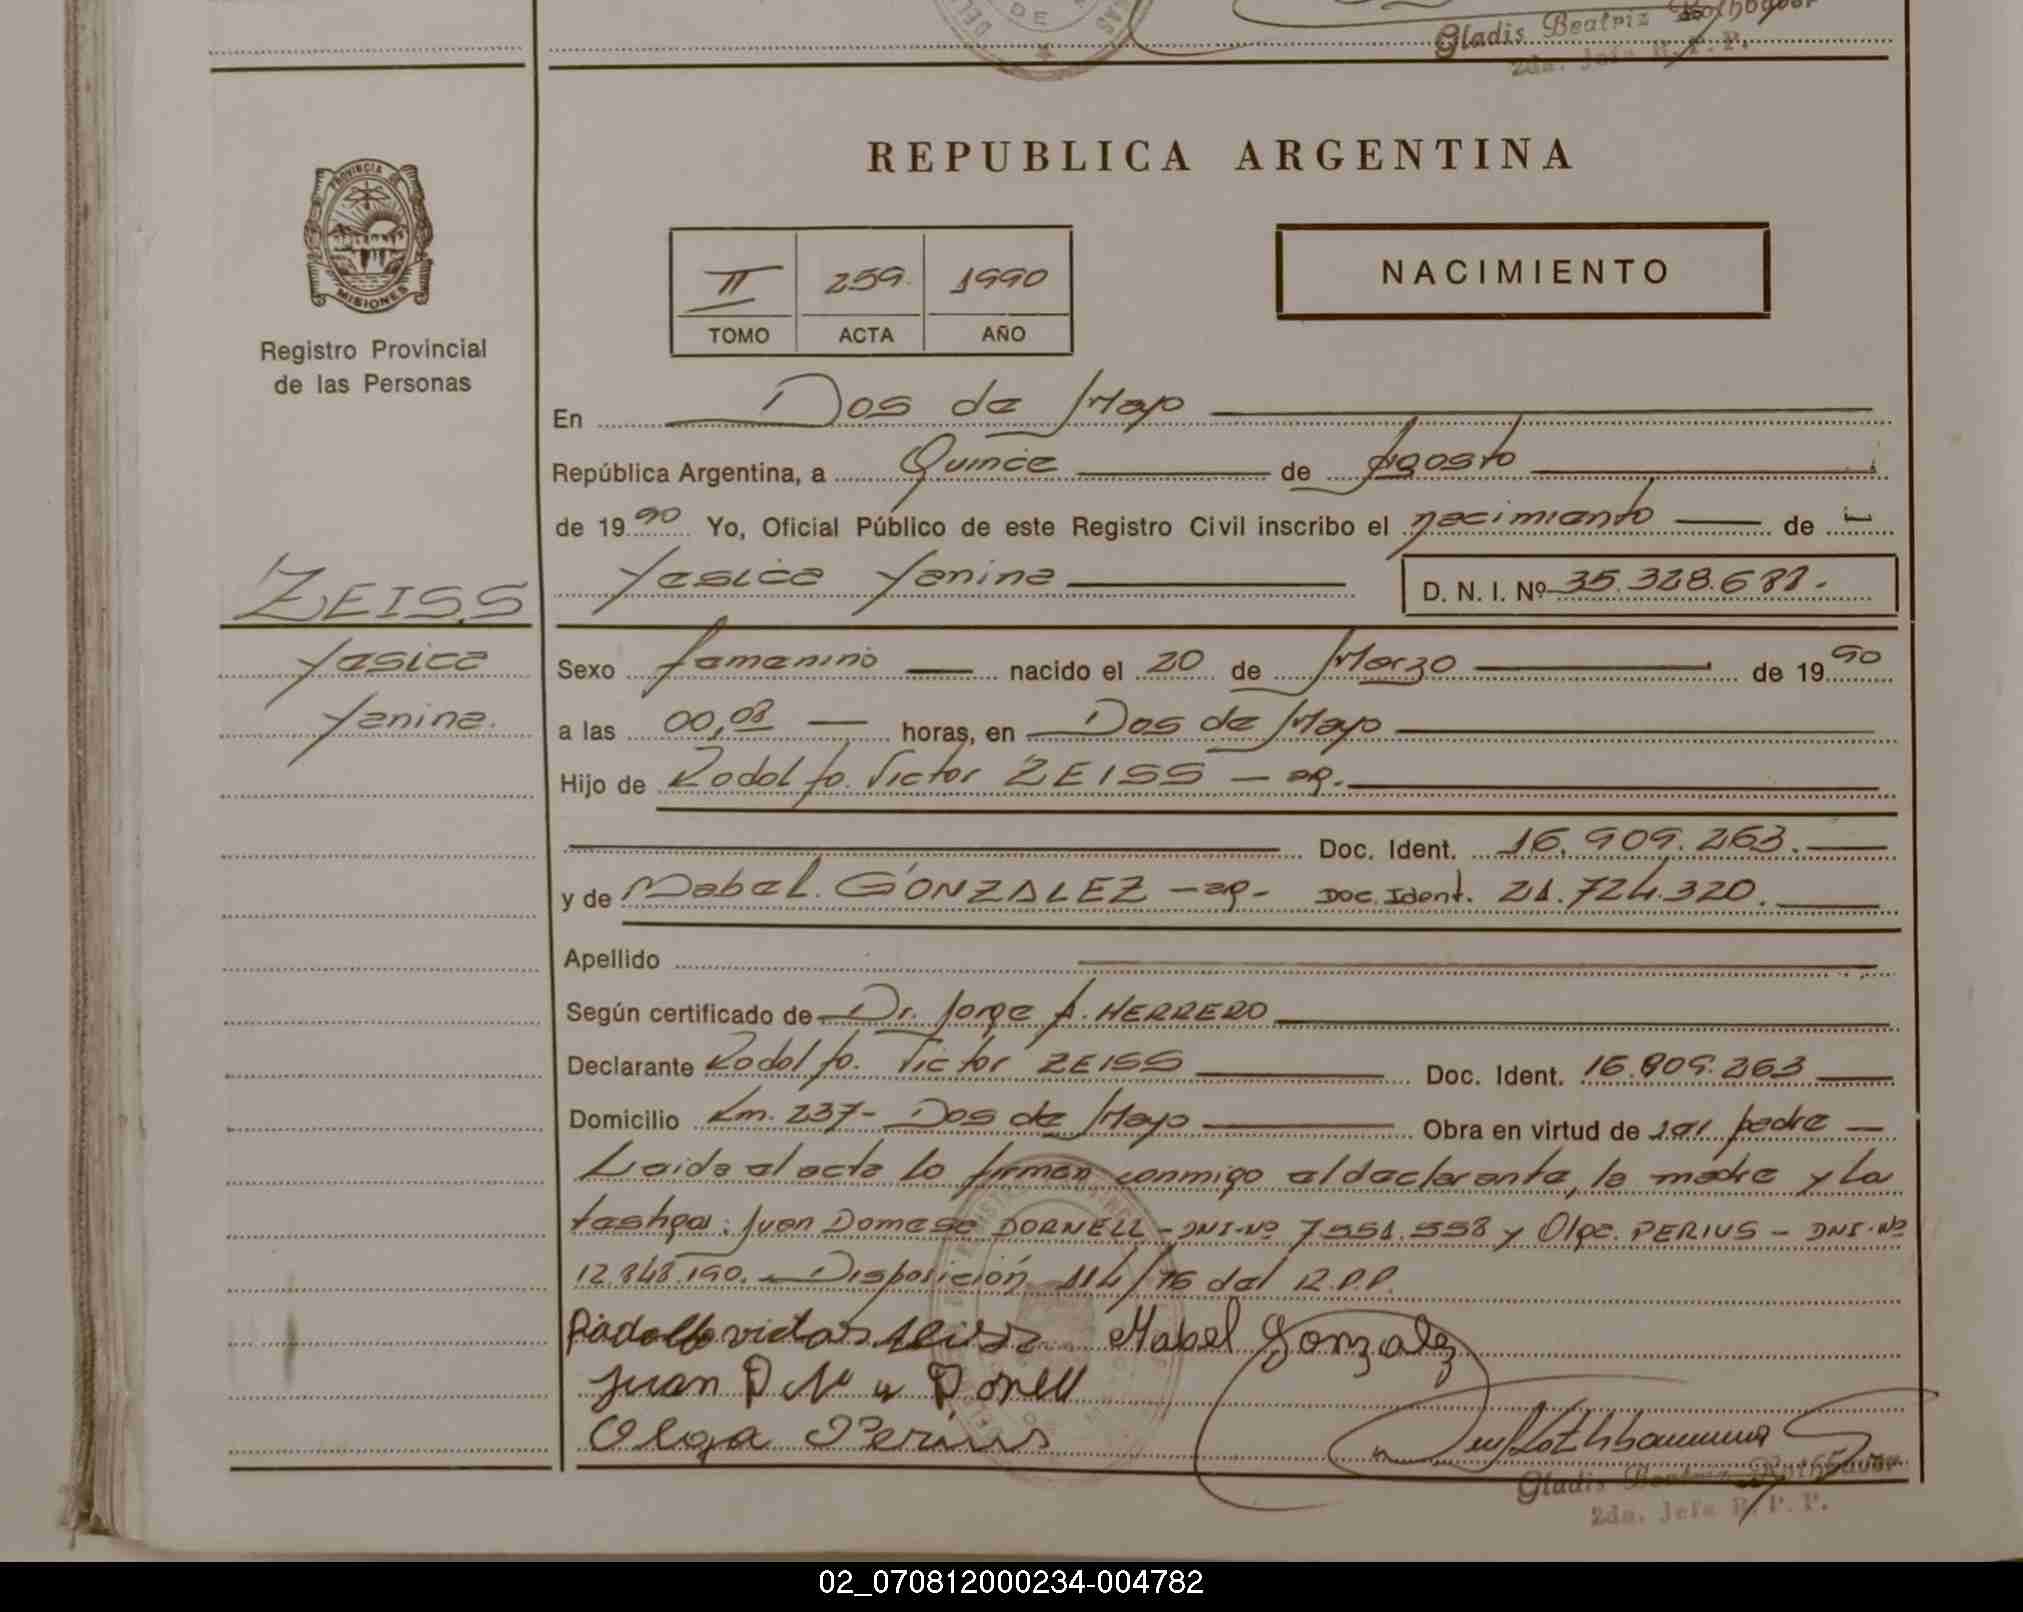 Gladis Beatriz Rothbauer
2da. Jefa R. P. P.
REPUBLICA ARGENTINA
PROVINCIA DE
MISIONES
Registro Provincial
de las Personas
II 259. 1990
TOMO ACTA AÑO
NACIMIENTO
En Dos de Mayo
República Argentina, a Quince de Agosto
de 1990 Yo, Oficial Público de este Registro Civil inscribo el nacimiento de
Yesica Yanina D. N. I. Nº 35.328.681.
ZEISS
Yesica
Yanina.
Sexo femenino nacido el 20 de Marzo de 1990
a las 00,08 horas, en Dos de Mayo
Hijo de Rodolfo. Victor ZEISS - ag.
Doc. Ident. 16.909.263.
y de Mabel. GONZALEZ - ag - Doc. Ident. 21.724.320.
Apellido
Según certificado de Dr. Jorge A. HERRERO
Declarante Rodolfo. Victor ZEISS Doc. Ident. 16.909.263
Domicilio Km. 237- Dos de Mayo Obra en virtud de ser padre
Leida el acta lo firman conmigo el declarante, la madre y los
testigos: Juan Domase DORNELL - DNI-Nº 7.551.558 y Olga. PERIUS - DNI-Nº
12.848.190. Disposición 114/76 del R.P.P.
Rodolfo victor Zeiss Mabel Gonzalez
Juan D
Olga Perius
Gladis Beatriz Rothbauer
2da. Jefa R. P. P.
02_070812000234-004782